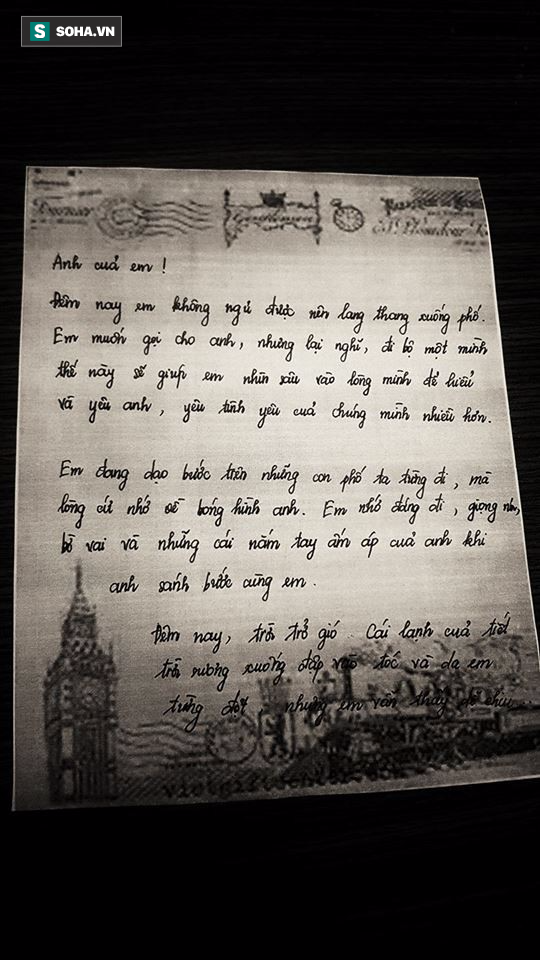 SOHA.VN
Anh của em !
Đêm nay em không ngủ được nên lang thang xuống phố.
Em muốn gọi cho anh, nhưng lại nghĩ, đi bộ một mình
thế này sẽ giúp em nhìn sâu vào lòng mình để hiểu
và yêu anh, yêu tình yêu của chúng mình nhiều hơn.
Em đang dạo bước trên những con phố ta từng đi, mà
lòng cứ nhớ về bóng hình anh. Em nhớ dáng đi, giọng nói,
bờ vai và những cái nắm tay ấm áp của anh khi
anh sánh bước cùng em.
Đêm nay, trời trở gió. Cái lạnh của tiết
trời sương xuống đáp vào tóc và da em
từng đợt, nhưng em vẫn thấy dễ chịu...